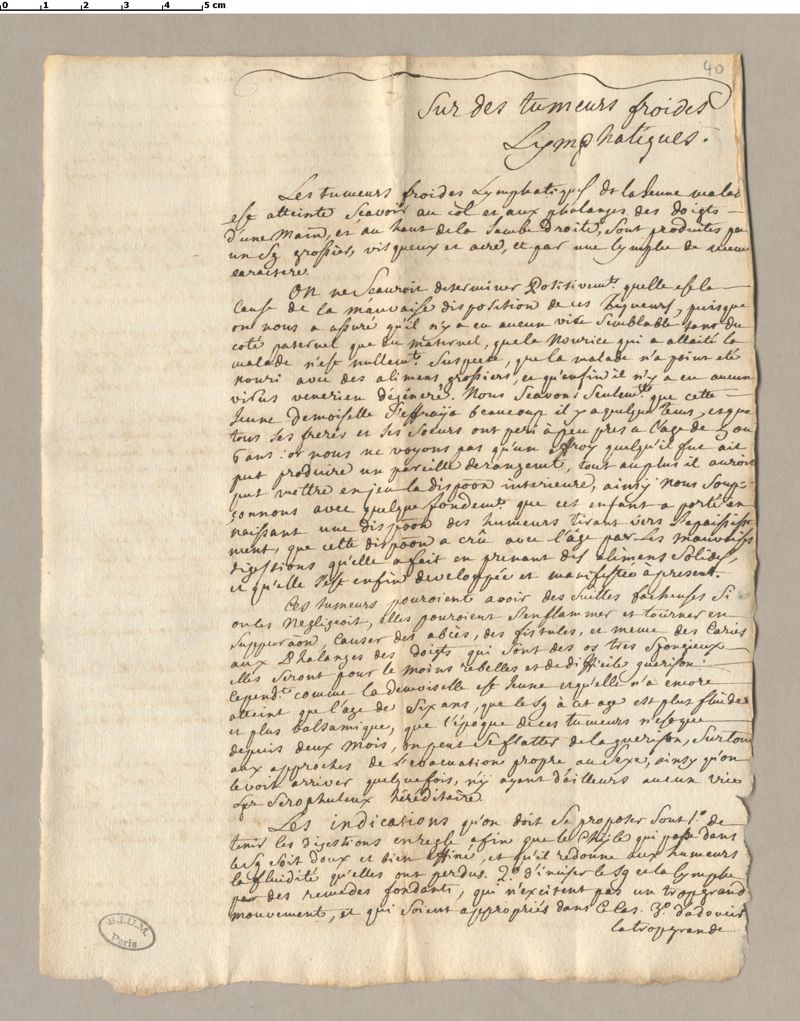 0 1 2 3 4 5 cm
40
Sur des tumeurs froides
Lymphatiques.
Les tumeurs froides Lymphatiques dt la Jeune malad
est atteinte Scavoir au col et aux phalanges des doigts
d'une Main, et au haut de la Jambe droite, Sont produites par
un Sg grossier, visqueux et acre, et par une lymphe de meme
caractere.
On ne Scauroit determiner Positivemt. quelle est la
Cause de la mauvaise disposition de ces liqueurs, puisque
on nous a assuré qu'il n'y a eu aucun vice Semblable tant du
coté paternel que du maternel, que la Nourice qui a allaité la
malade n'est nullemt. Suspecte, que la malade n'a point eté
nouri avec des alimens grossiers, et qu'enfin il n'y a eu aucun
virus venerien dégéneré. Nous Scavons Seulemt. que cette
Jeune demoiselle S'effraya beaucoup il y a quelque tems, et que
tous Ses freres et Ses Soeurs ont peri à peu pres a l'age de 5 ou
6 ans: or nous ne voyons pas qu'un effroy quelqu'il fut ait
put produire un pareille derangemt, tout au plus il auroit
put mettre en jeu la dispoõn interieure, ainsy Nous Soup-
çonnons avec quelque fondemt. que cet enfant a porté en
naissant une dispoõn des humeurs tirant vers l'apaississe
ment, que cette dispoõn a crû avec l'âge par les mauvaises
digestions qu'elle a fait en prenant des alimens Solides,
et qu'elle s'est enfin developpée et manifestée à present.
Ces tumeurs pouroient avoir des Suittes facheuses Si
on les Negligeoit, elles pouroient S'enflammer et tourner en
Suppuraõn, Causer des abcès, des fistules, et meme des Caries
aux Phalanges des doigts qui Sont des os tres Spongieux
elles Seront pour le moins rebelles et de difficile guerison:
Cependt. comme la demoiselle est Jeune et qu'elle n'a encore
atteint que l'age de Six ans, que le Sg à cet age est plus fluide
et plus balsamique, que l'époque de ces tumeurs n'est que
depuis deux Mois, on peut Se flatter de la guerison, Surtout
aux approches de l'evacuation propre au Sexe, ainsy qu'on
le voit arriver quelquefois, n'y ayant d'ailleurs aucun vice
Scrophuleux héréditaire.
Les indications qu'on doit Se proposer Sont 1.° de
tenir les digestions en regle afin que le Chyle qui passe dans
le Sg Soit doux et bien affiné, et qu'il redonne aux humeurs
la fluidité qu'elles ont perdus. 2.° d'inciser le Sg et la lymphe
par des remedes fondants, qui n'excitent pas un trop grand
mouvement, et qui Soient appropriés dans Ce Cas. 3.° d'adoucir
la trop grande
B.I.U.M.
Paris